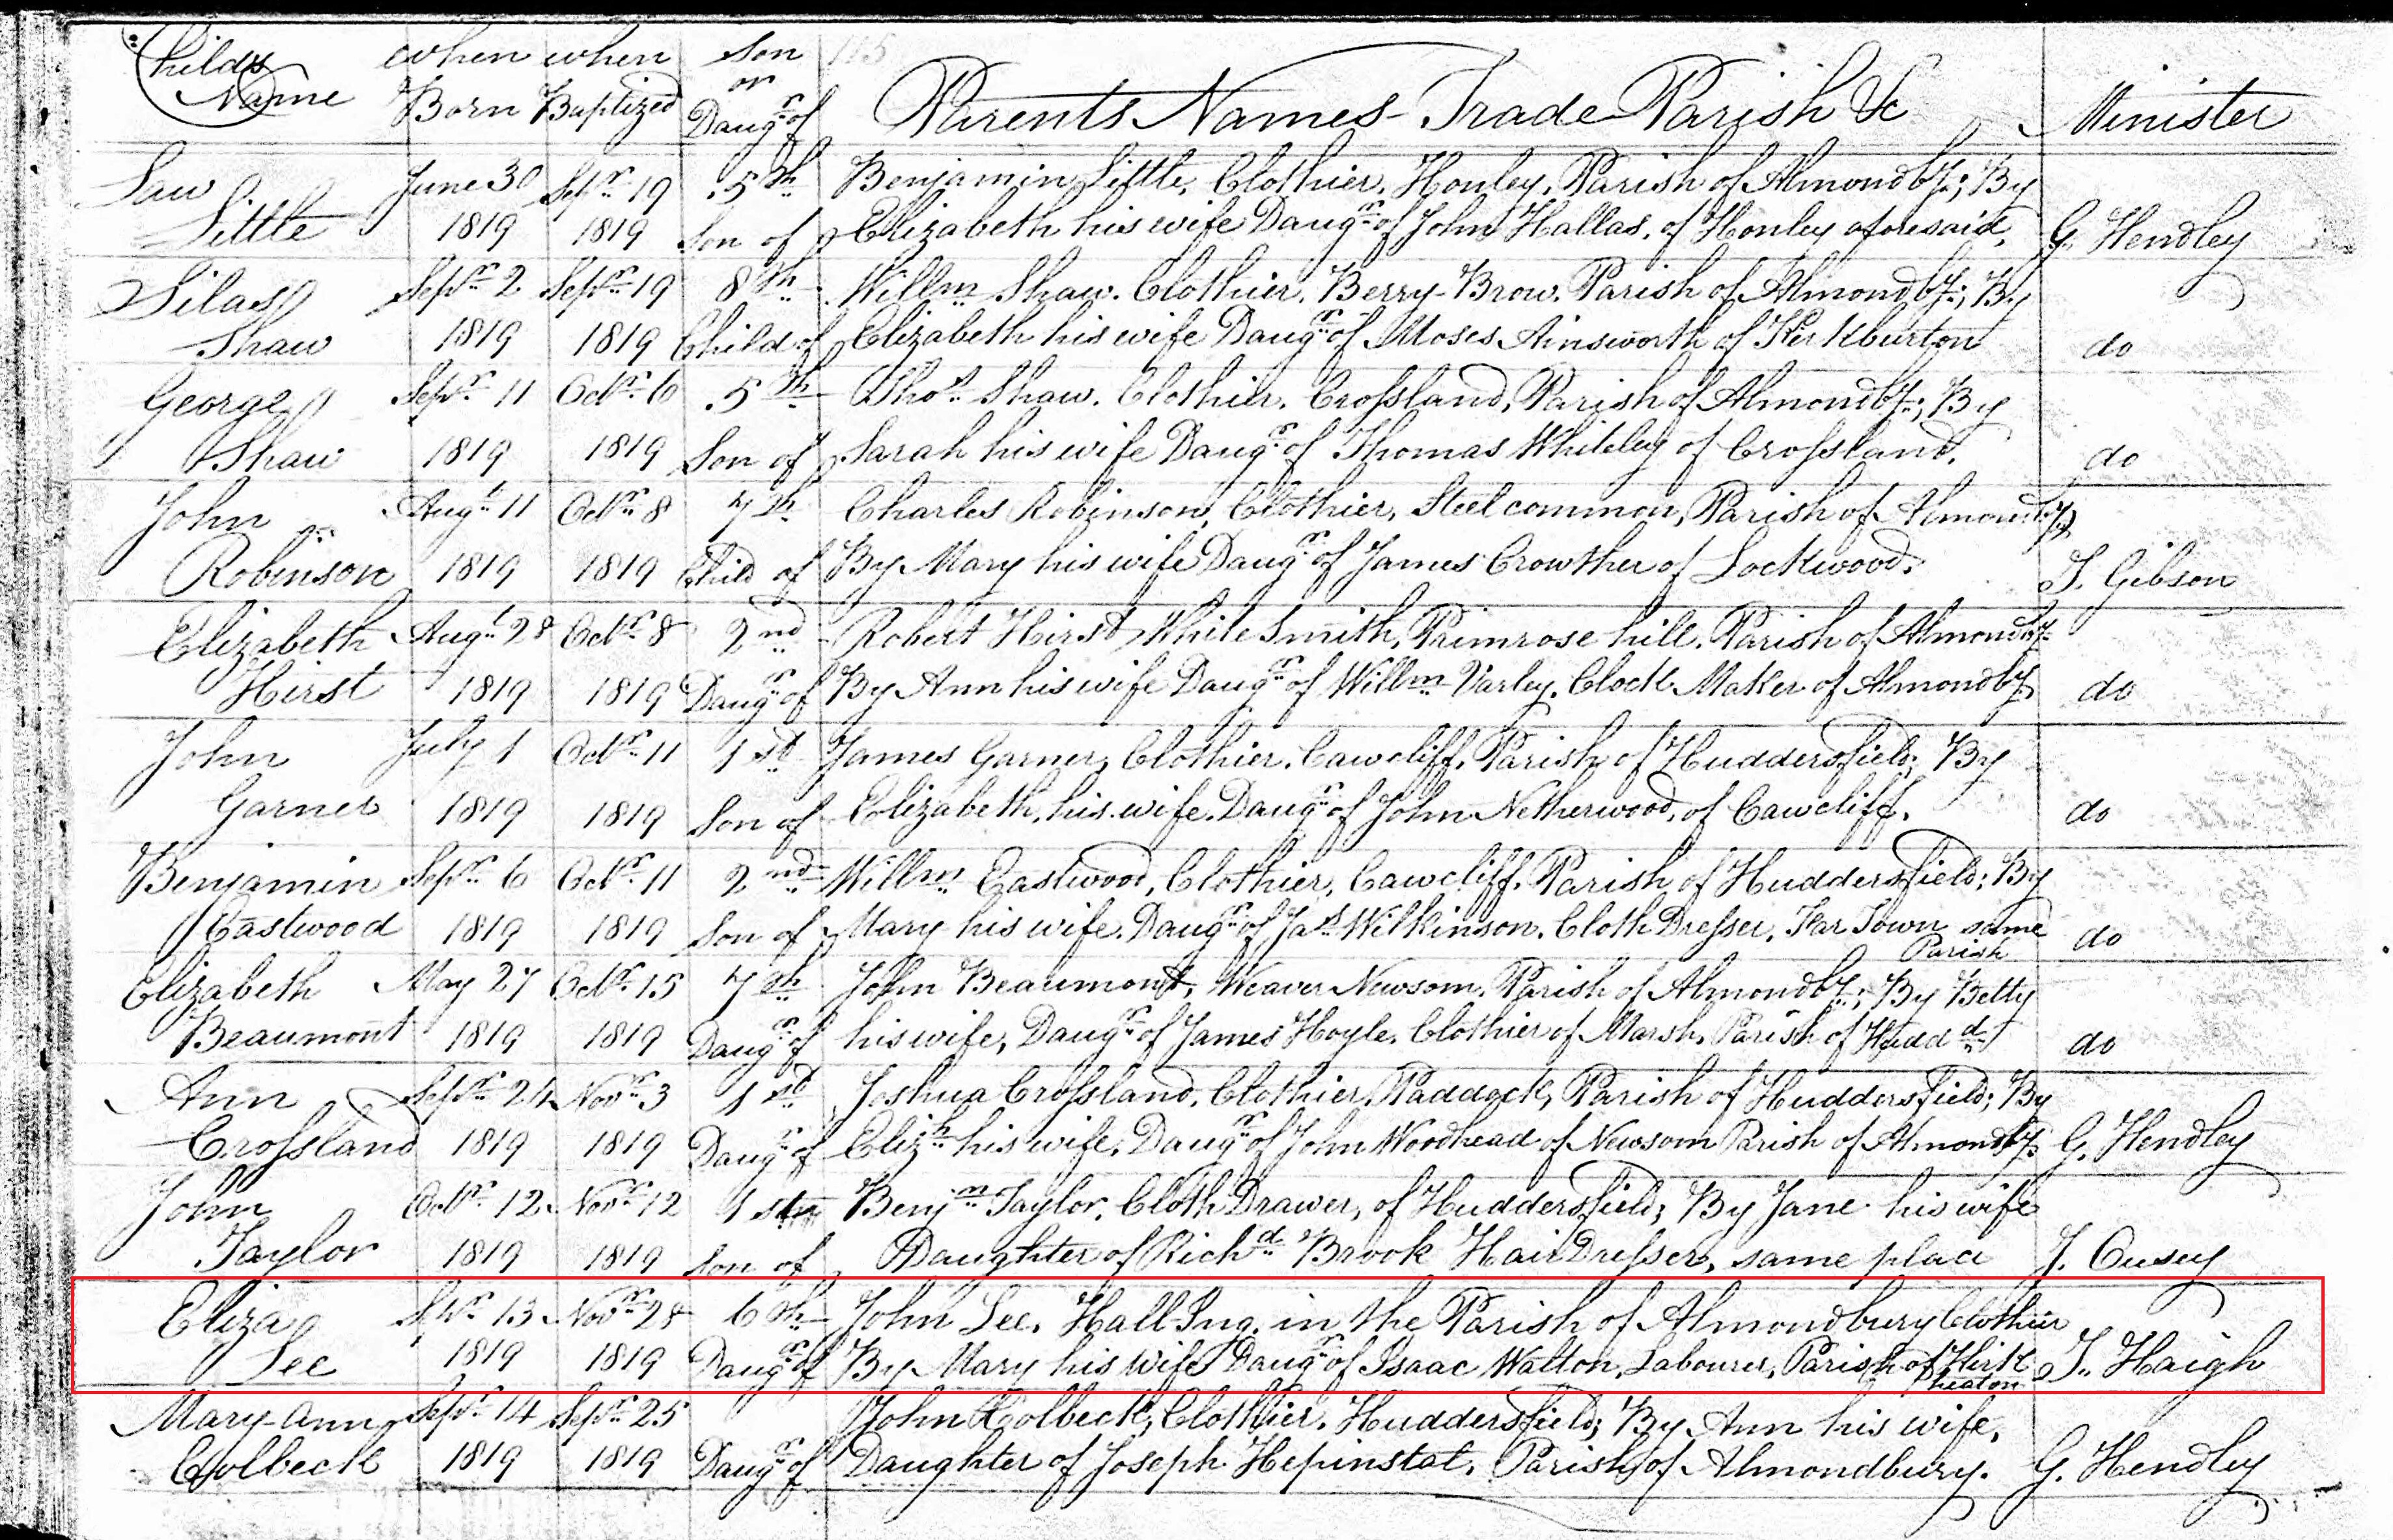 Childs when when Son 115
Name Born Baptized or Daugr. of Parents Names Trade Parish &c Minister
Law June 30 Sepr. 19 5th Benjamin Little, Clothier, Honley, Parish of Almondby.; By
Little 1819 1819 Son of Elizabeth his wife Daugr. of John Hallas, of Honley aforesaid, G. Hendley
Silas Sepr. 2 Sepr. 19 8th Willm. Shaw. Clothier, Berry-Brow, Parish of Almondby.; By
Shaw 1819 1819 Child of Elizabeth his wife Daugr. of Moses Ainsworth of Kirkburton do
George Sepr. 11 Octr. 6 5th Thos. Shaw. Clothier. Crossland, Parish of Almondby.; By
Shaw 1819 1819 Son of Sarah his wife Daugr. of Thomas Whiteley of Crossland. do
John Augt. 11 Octr. 8 7th Charles Robinson, Clothier, Steel common, Parish of Almondby.
Robinson 1819 1819 Child of By Mary his wife Daugr. of James Crowther of Lockwood. J. Gibson
Elizabeth Augt. 28 Octr. 8 2nd Robert Hirst White Smith, Primrose hill. Parish of Almondby.
Hirst 1819 1819 Daugr. of By Ann his wife Daugr. of Willm. Varley, Clock Maker of Almondby. do
John July 1 Octr. 11 1st James Garner, Clothier, Cawcliff, Parish of Huddersfield; By
Garner 1819 1819 Son of Elizabeth, his wife, Daugr. of John Netherwood, of Cawcliff. do
Benjamin Sepr. 6 Octr. 11 2nd Willm. Eastwood, Clothier, Cawcliff. Parish of Huddersfield; By
Eastwood 1819 1819 Son of Mary his wife. Daugr. of Jas. Wilkinson. Cloth Dresser, Far Town same Parish do
Elizabeth May 27 Octr. 15 7th John Beaumont, Weaver Newsom, Parish of Almondby.; By Betty
Beaumont 1819 1819 Daugr. of his wife, Daugr. of James Hoyle, Clothier of Marsh, Parish of Hudd d. do
Ann Sepr. 24 Novr. 3 1st Joshua Crossland, Clothier, Paddock, Parish of Huddersfield; By
Crossland 1819 1819 Daugr. of Elizh. his wife. Daugr. of John Woodhead of Newsom Parish of Almondby. G. Hendley
John Octr. 12 Novr. 12 1st Benjm. Taylor, Cloth Drawer, of Huddersfield; By Jane his wife
Taylor 1819 1819 Son of Daughter of Richd. Brook Hair Dresser, same place J. Cusey
Eliza Sepr. 13 Novr. 28 6th John Lee, Hall-Ing, in the Parish of Almondbury Clothier
Lee 1819 1819 Daugr. of By Mary his wife Daugr. of Isaac Walton, Labourer, Parish of Kirk heaton J. Haigh
Mary-Ann Sepr. 14 Sepr. 25 John Colbeck, Clothier, Huddersfield; By Ann his wife,
Colbeck 1819 1819 Daugr. of Daughter of Joseph Hepinstal, Parish of Almondbury. G. Hendley